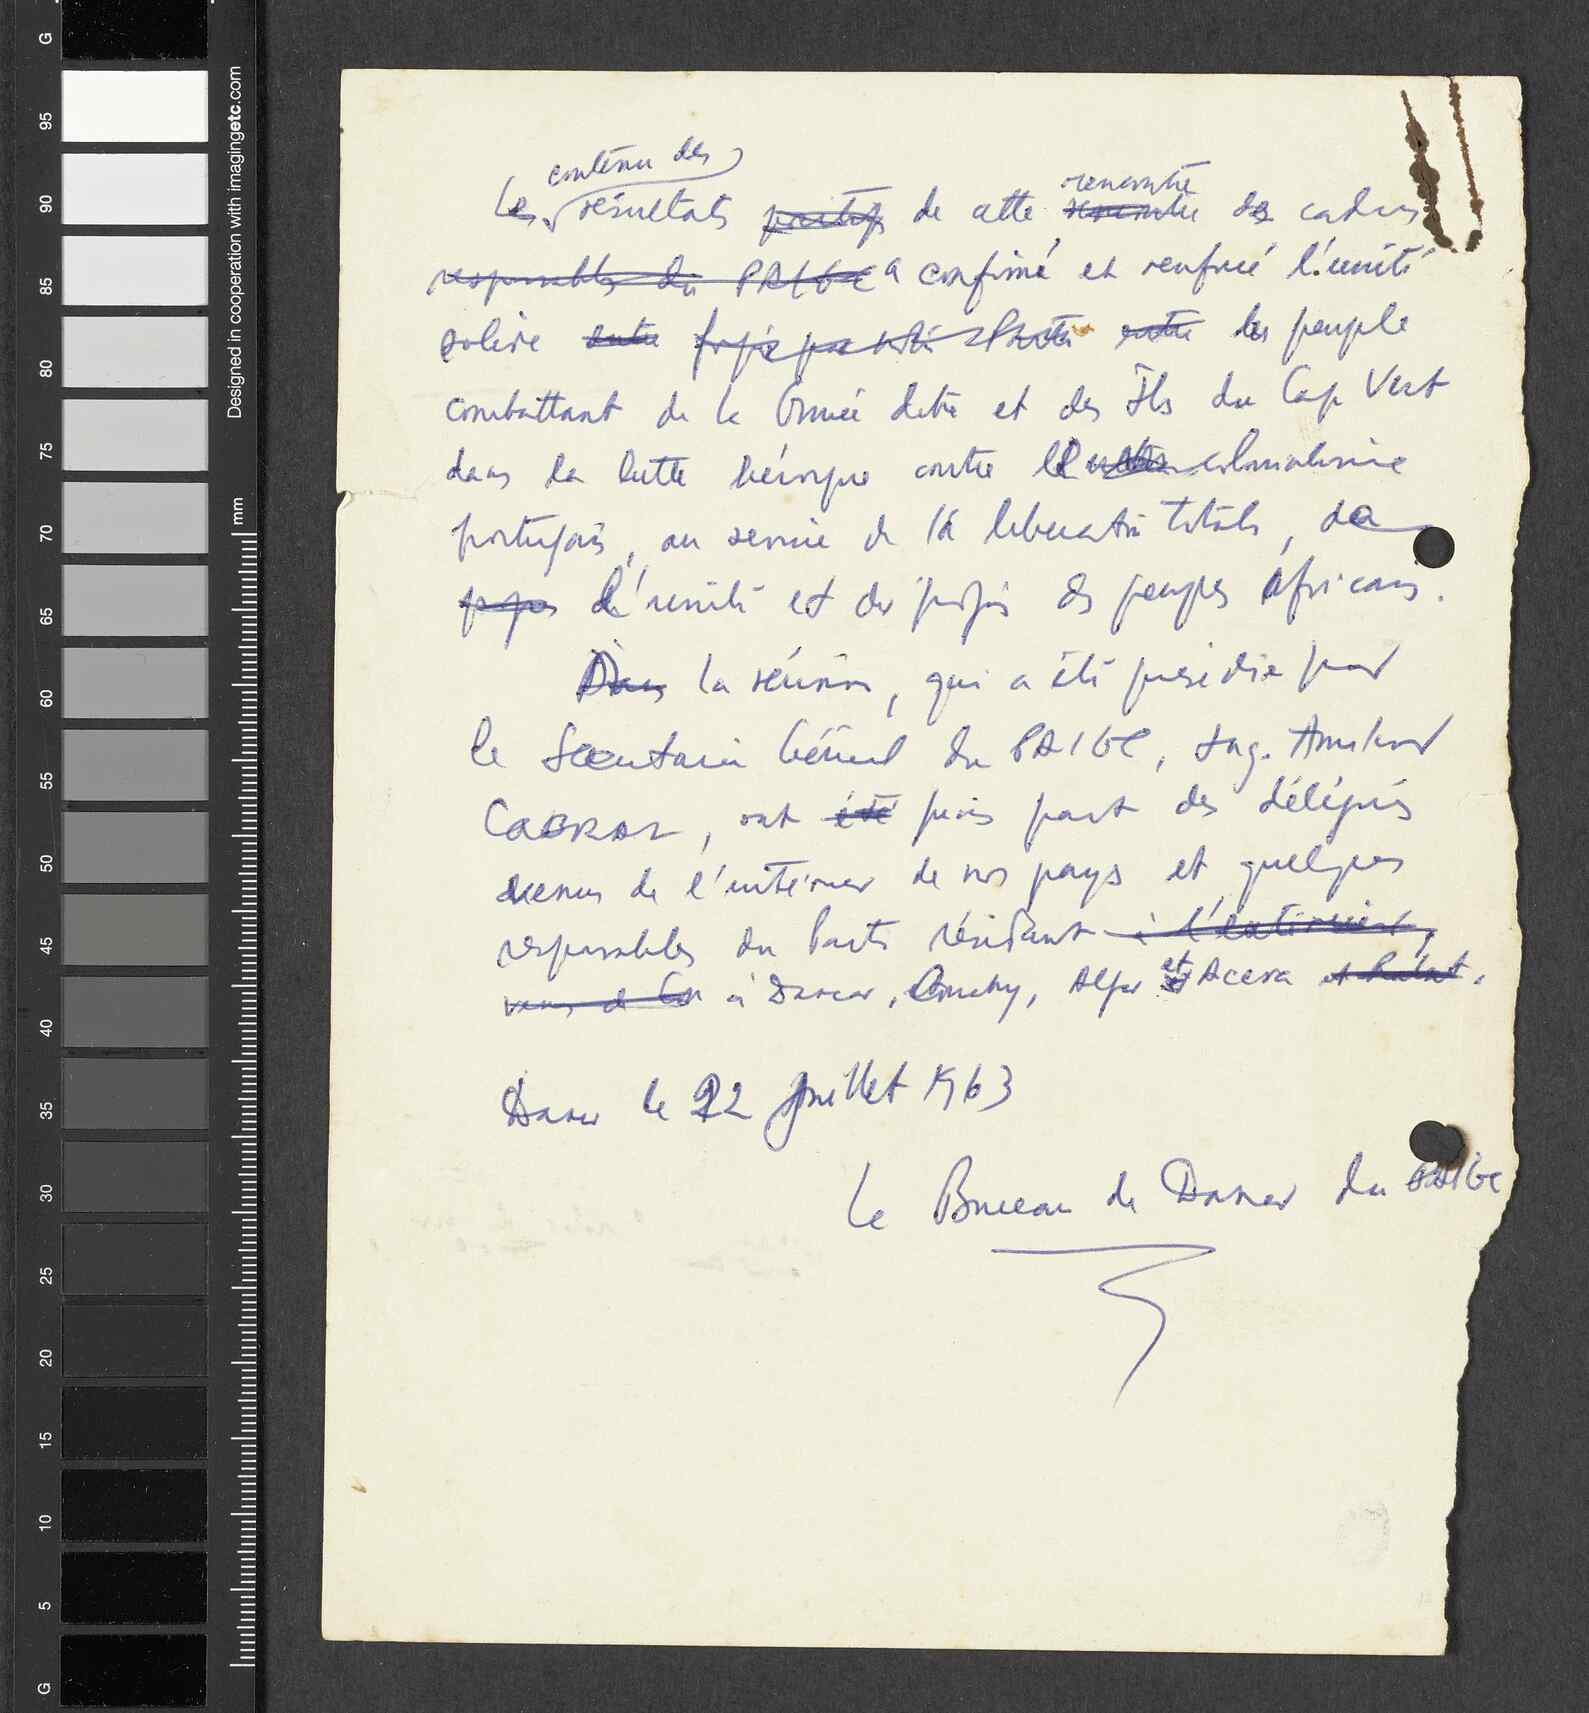 G
95
90
85
80
75
70
65
60
55
50
45
40
35
30
25
20
15
10
5
G
Designed in cooperation with imagingetc.com
mm
contenu des
rencontre
Les résultats positifs de cette rencontre des cadres
responsables du PAIGC a confirmé et renforcé l'unité
solide entre forgée par notre Parti entre les peuple
combattant de la Guinée dite et des Îles du Cap Vert
dans la lutte héroïque contre le colonialisme
portugais, au service de la libération totale, de
l'unité et du progrès des peuples africains.
Dans la réunion, qui a été présidée par
le Secrétaire Général du PAIGC, Ing. Amilcar
CABRAL, ont été pris part des délégués
venus de l'intérieur de nos pays et quelques
responsables du Parti résidant à l'extérieur,
et
venus de Con à Dakar, Conakry, Alger et Accra et Rabat.
Dakar le 22 Juillet 1963
Le Bureau de Dakar du PAIGC